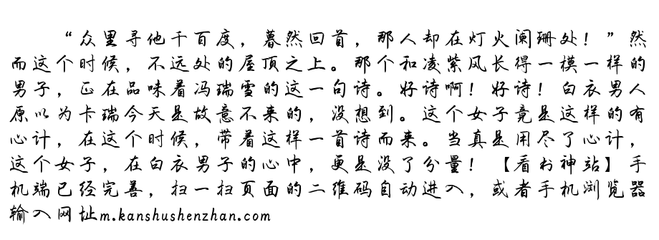 “众里寻他千百度，蓦然回首，那人却在灯火阑珊处！”然
而这个时候，不远处的屋顶之上。那个和凌紫风长得一模一样的
男子，正在品味着冯瑞雪的这一句诗。好诗啊！好诗！白衣男人
原以为卡瑞今天是故意不来的，没想到。这个女子竟是这样的有
心计，在这个时候，带着这样一首诗而来。当真是用尽了心计，
这个女子，在白衣男子的心中，更是没了分量！【看书神站】手
机端已经完善，扫一扫页面的二维码自动进入，或者手机浏览器
输入网址m.kanshushenzhan.com